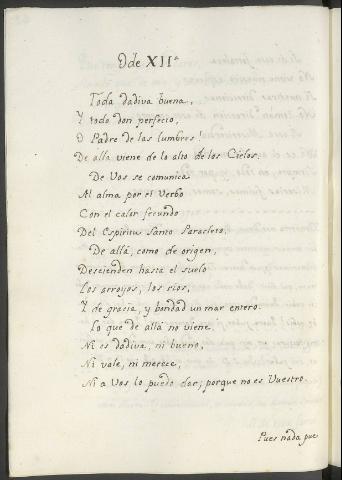 Ode XII.ª
Toda dadiva buena,
Y todo don perfecto,
O Padre de las lumbres!
De allà viene de lo alto de los Cielos.
De Vos se comunica
Al alma por el Verbo
Con el calor fecundo
Del Espiritu Santo Paracleto.
De allà, como de origen,
Descienden hasta el suelo
Los arroyos, los rios,
Y de gracia, y bondad un mar entero.
Lo que de allà no viene,
Ni es dadiva, ni bueno,
Ni vale, ni merece,
Ni a Vos lo puedo dar; porque no es Vuestro.
Pues nada pue